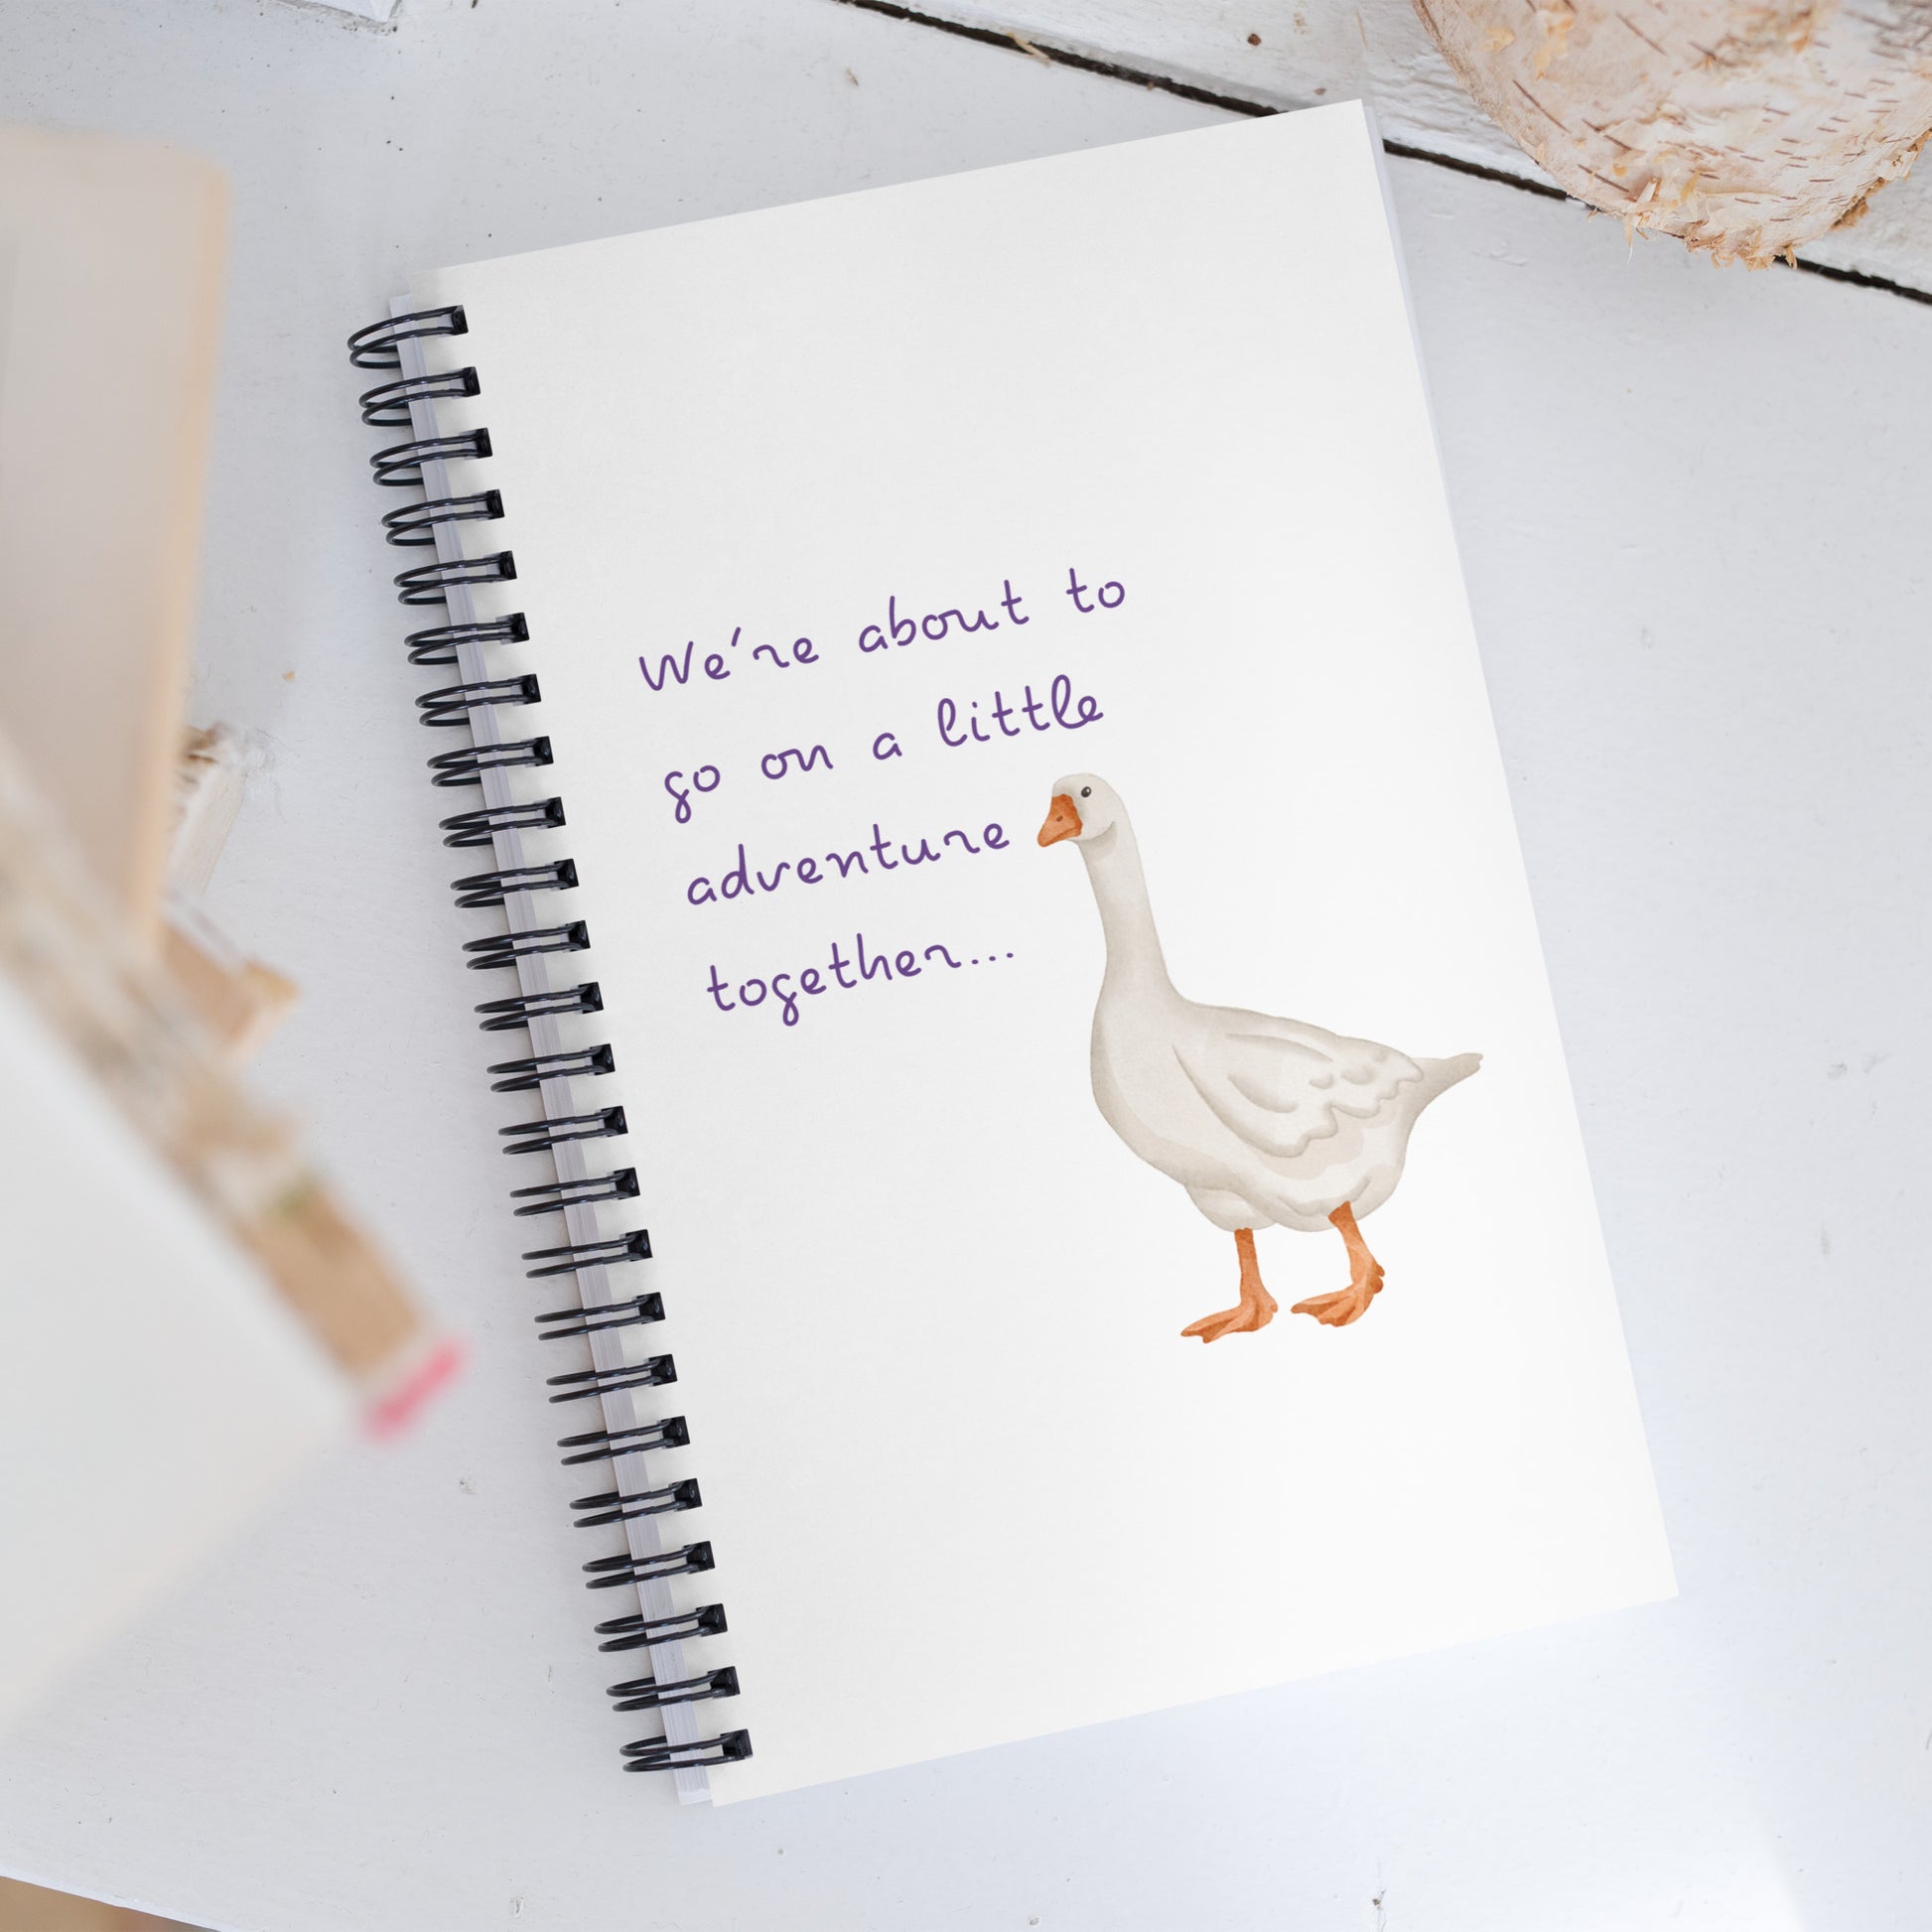 We're about to
go on a little
adventure
together...